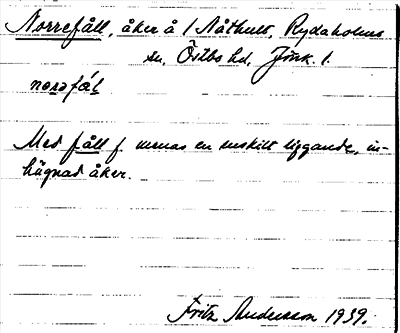 Norrefåll, åker å 1 Nåthult, Rydaholms
sn, Östbo hd, Jönk. l.
nor̄əfál
Med fåll f. menas en enskilt liggande, in-
hägnad åker.
Fritz Andersson 1939.